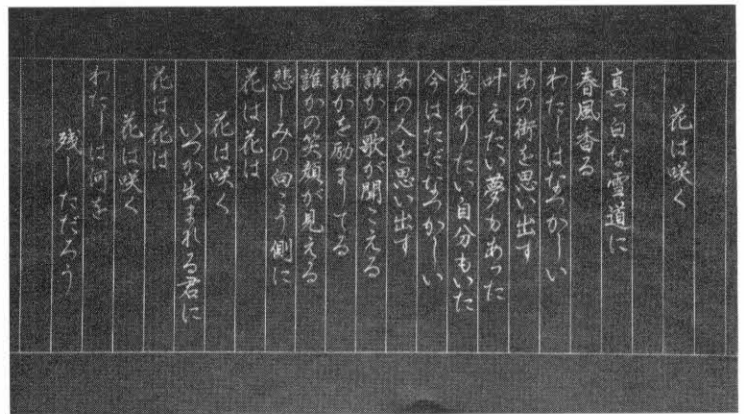 花は咲く
真っ白な雪道に
春風香る
わたしはなつかしい
あの街を思い出す
叶えたい夢もあった
変わりたい自分もいた
今はただなつかしい
あの人を思い出す
誰かの歌が聞こえる
誰かを励ましてる
誰かの笑顔が見える
悲しみの向こう側に
花は花は
花は咲く
いつか生まれる君に
花は花は
花は咲く
わたしは何を
残しただろう